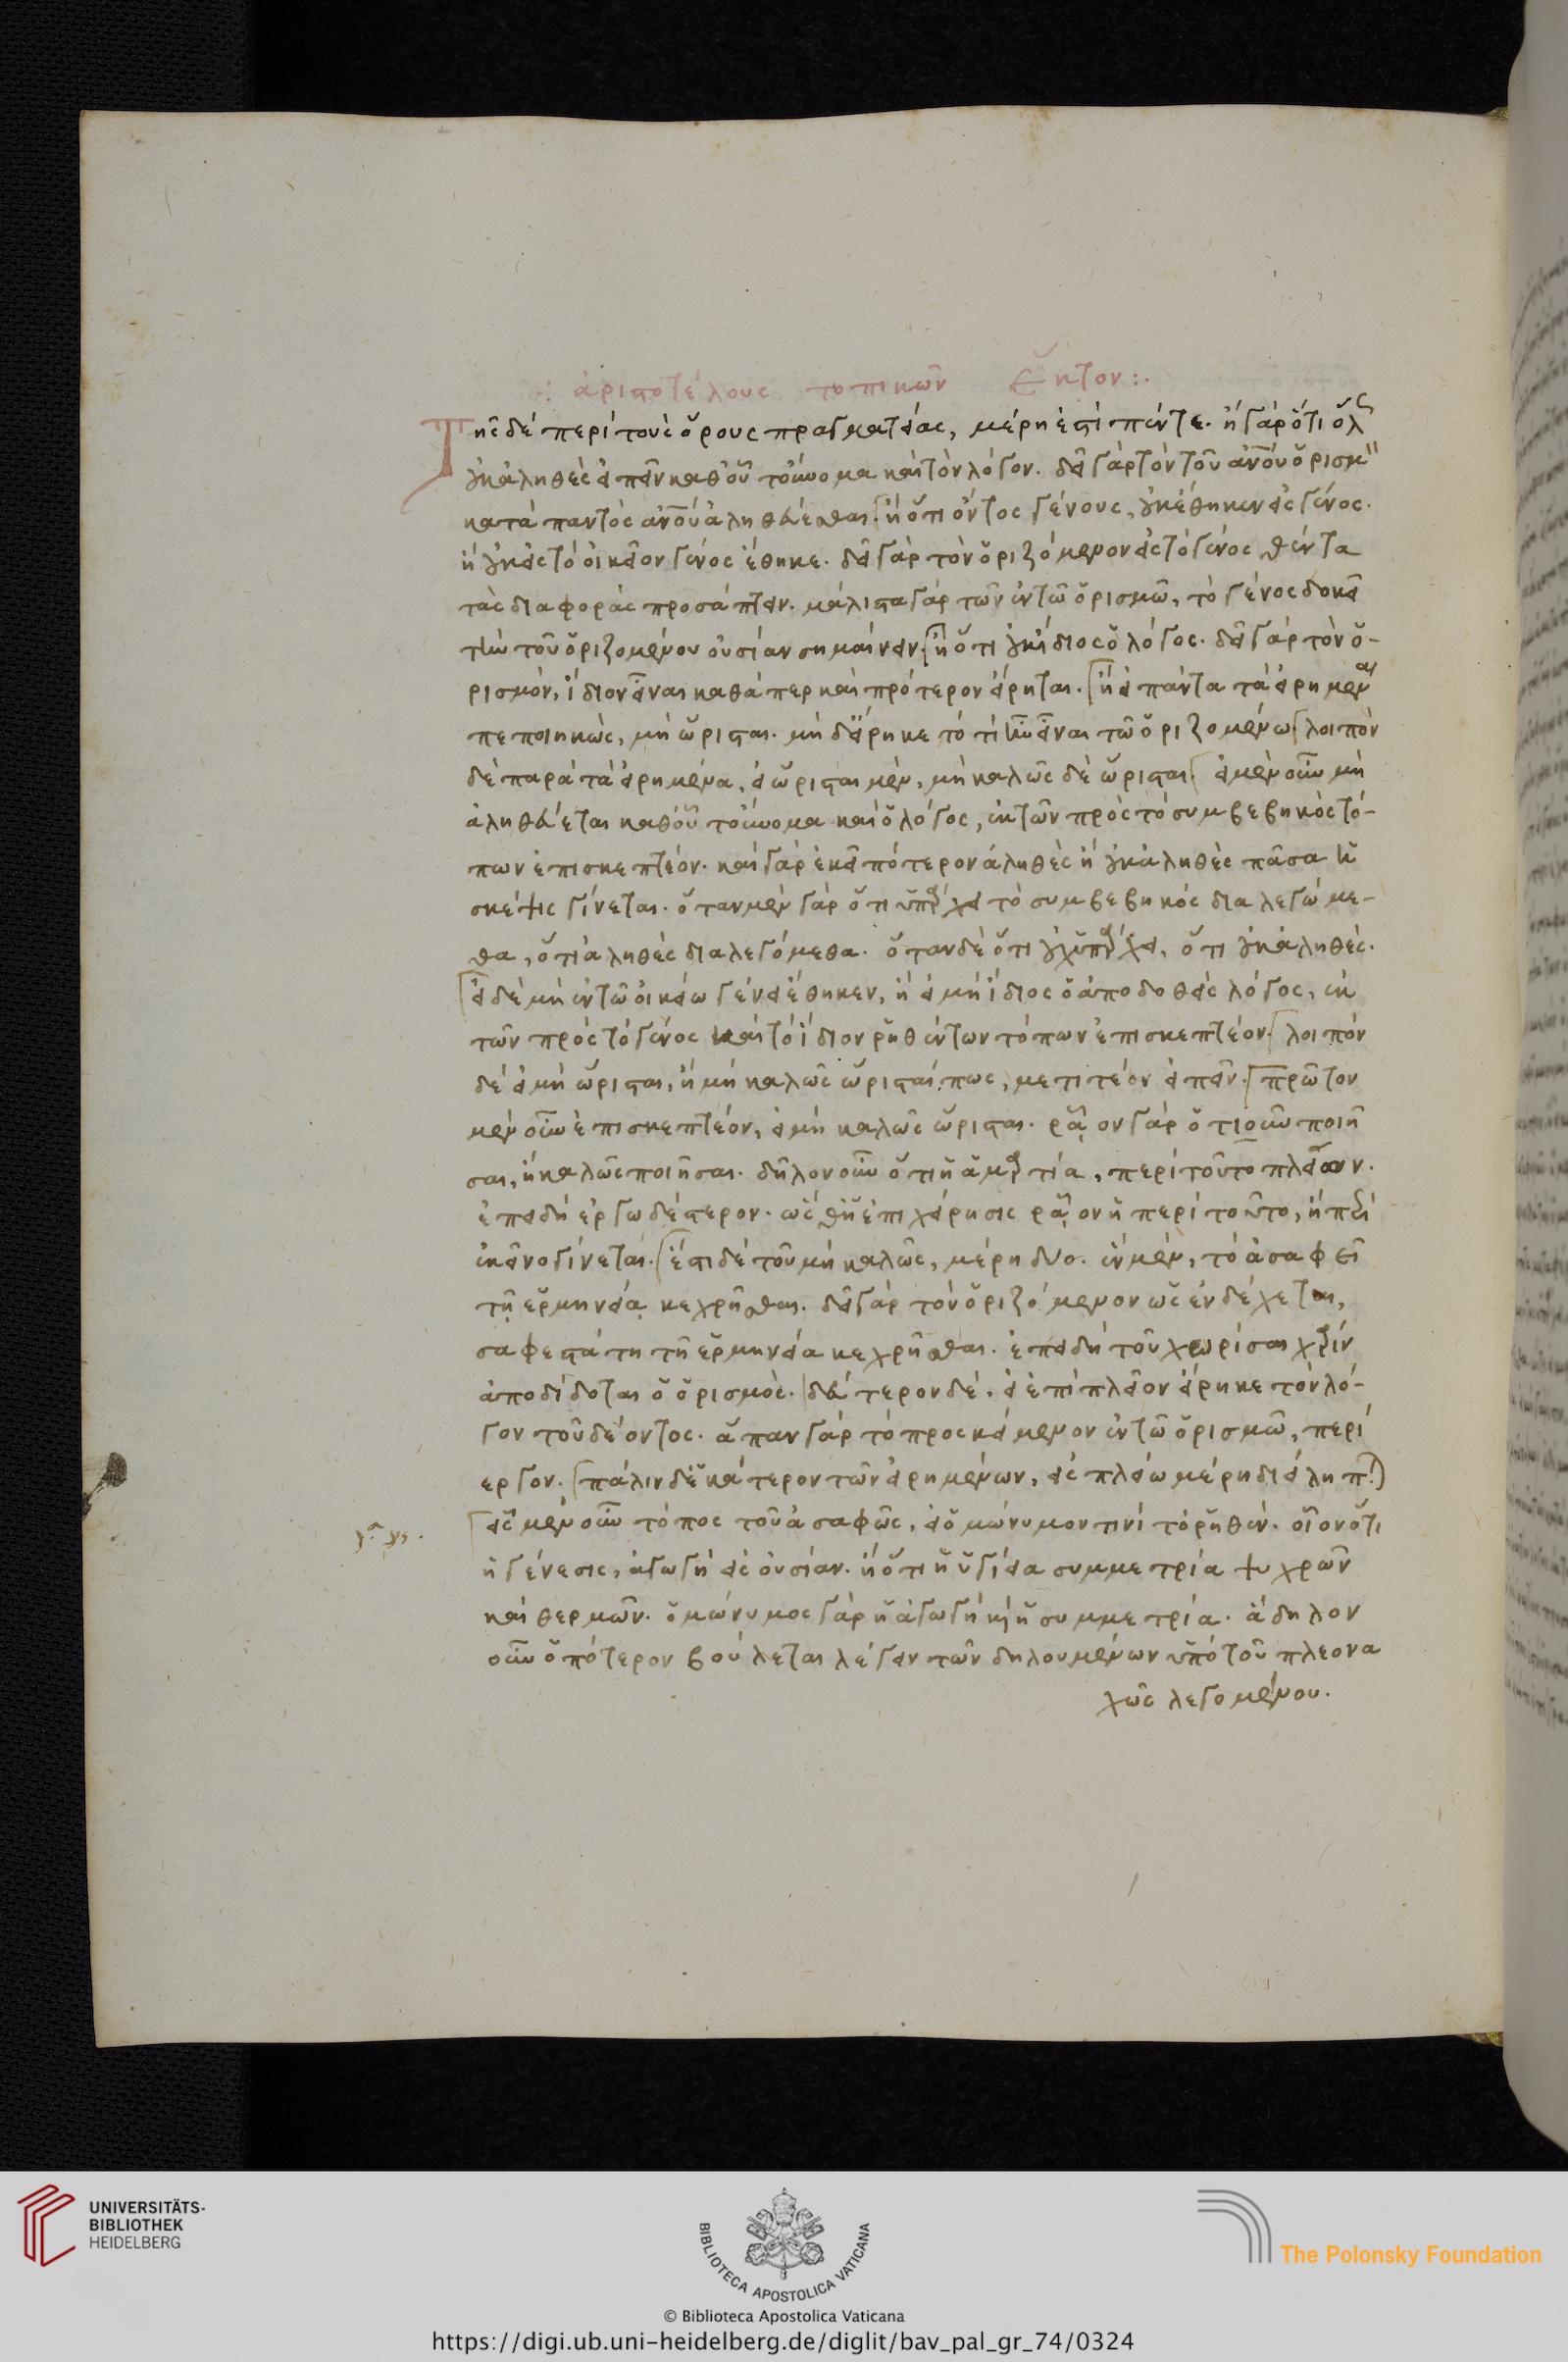 ἀριστοτέλους τοπικῶν ἕκτον:
Τῆς δὲ περὶ τοὺς ὅρους πραγματείας, μέρη ἐστὶ πέντε. ἢ γὰρ ὅτι ὅλως
οὐκ ἀληθὲς εἰπεῖν καθ' οὗ τοὔνομα καὶ τὸν λόγον. δεῖ γὰρ τὸν τοῦ ἀνου ὁρισμὸν
κατὰ παντὸς ἀνου ἀληθεύεσθαι. ἢ ὅτι ὄντος γένους, οὐκ ἔθηκεν εἰς γένος.
ἢ οὐκ εἰς τὸ οἰκεῖον γένος ἔθηκε. δεῖ γὰρ τὸν ὁριζόμενον εἰς τὸ γένος θέντα
τὰς διαφορὰς προσάπτειν. μάλιστα γὰρ τῶν ἐν τῷ ὁρισμῷ, τὸ γένος δοκεῖ
τὴν τοῦ ὁριζομένου οὐσίαν σημαίνειν. ἢ ὅτι οὐκ ἴδιος ὁ λόγος. δεῖ γὰρ τὸν ὁ-
ρισμὸν, ἴδιον εἶναι καθάπερ καὶ πρότερον εἴρηται. ἢ εἰ πάντα τὰ εἰρημένα
πεποιηκὼς, μὴ ὥρισται. μὴ δ' εἴρηκε τὸ τί ἦν εἶναι τῷ ὁριζομένῳ λοιπὸν
δὲ παρὰ τὰ εἰρημένα, εἰ ὥρισται μὲν, μὴ καλῶς δὲ ὥρισται εἰ μὲν οὖν μὴ
ἀληθεύεται καθ' οὗ τοὔνομα καὶ ὁ λόγος, ἐκ τῶν πρὸς τὸ συμβεβηκὸς τό-
πων ἐπισκεπτέον. καὶ γὰρ ἐκεῖ πότερον ἀληθὲς ἢ οὐκ ἀληθὲς πᾶσα ἡ
σκέψις γίνεται. ὅταν μὲν γὰρ ὅτι ὑπάρχει τὸ συμβεβηκός διαλεγώμε-
θα, ὅτι ἀληθὲς διαλεγόμεθα. ὅταν δὲ ὅτι οὐχ ὑπάρχει, ὅτι οὐκ ἀληθές.
εἰ δὲ μὴ ἐν τῷ οἰκείω γένει ἔθηκεν, ἢ εἰ μὴ ἴδιος ὁ ἀποδοθεὶς λόγος, ἐκ
τῶν πρὸς τὸ γένος καὶ τὸ ἴδιον ῥηθέντων τόπων ἐπισκεπτέον. λοιπὸν
δὲ εἰ μὴ ὥρισται, ἢ μὴ καλῶς ὥρισταί πως, μετιτέον εἰπεῖν. πρῶτον
μὲν οὖν ἐπισκεπτέον, εἰ μὴ καλῶς ὥρισται. ρᾷον γὰρ ὁτιοῦν ποιῆ
σαι, ἢ καλῶς ποιῆσαι. δῆλον οὖν ὅτι ἡ ἁμαρτία, περὶ τοῦτο πλείων.
ἐπειδὴ ἐργωδέστερον. ὥσθ' ἡ ἐπιχείρησις ρᾷον ἡ περὶ τοῦτο, ἢ περὶ
ἐκεῖνο γίνεται. ἔστι δὲ τοῦ μὴ καλῶς, μέρη δύο. ἓν μὲν, τὸ ἀσαφεῖ
τῇ ἑρμηνείᾳ κεχρῆσθαι. δεῖ γὰρ τὸν ὁριζόμενον ὡς ἐνδέχεται,
σαφεστάτη τῆ ἑρμηνεία κεχρῆσθαι. ἐπειδὴ τοῦ χωρίσαι χάριν
ἀποδίδοται ὁ ὁρισμός. δεύτερον δὲ, εἰ ἐπὶ πλεῖον εἴρηκε τὸν λό-
γον τοῦ δέοντος. ἅπαν γὰρ τὸ προσκείμενον ἐν τῷ ὁρισμῷ, περί
εργον. πάλιν δ' ἑκάτερον τῶν εἰρημένων, εἰς πλείω μέρη διείληπται
εἷς μὲν οὖν τόπος τοῦ ἀσαφῶς, εἰ ὁμώνυμον τινὶ τὸ ῥηθέν. οἷον ὅτι
ἡ γένεσις, ἀγωγὴ εἰς οὐσίαν. ἢ ὅτι ἡ ὑγίεια συμμετρία ψυχρῶν
καὶ θερμῶν. ὁμώνυμος γὰρ ἡ ἀγωγὴ καὶ ἡ συμμετρία. ἄδηλον
οὖν ὁπότερον βούλεται λέγειν τῶν δηλουμένων ὑπὸ τοῦ πλεονα
χῶς λεγομένου.
UNIVERSITÄTS-
BIBLIOTHEK
HEIDELBERG
BIBLIOTECA APOSTOLICA VATICANA
The Polonsky Foundation
© Biblioteca Apostolica Vaticana
https://digi.ub.uni-heidelberg.de/diglit/bav_pal_gr_74/0324